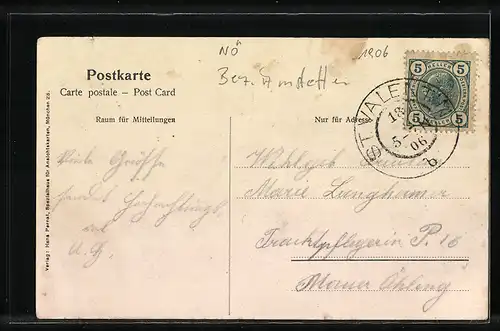 NÖ
1906
Bez. Amstetten
Postkarte
Carte postale – Post Card
Raum für Mitteilungen
Nur für Adresse
5 5
5 5
ST. VALENTIN
18
5
06
b
Viele Grüsse
sendet Hochachtungsv.
Wohlgeb.
Marie Lunghamer
P. 16
Mauer Öhling
Verlag: Hans Pernat, Spezialhaus für Ansichtskarten, München 25.